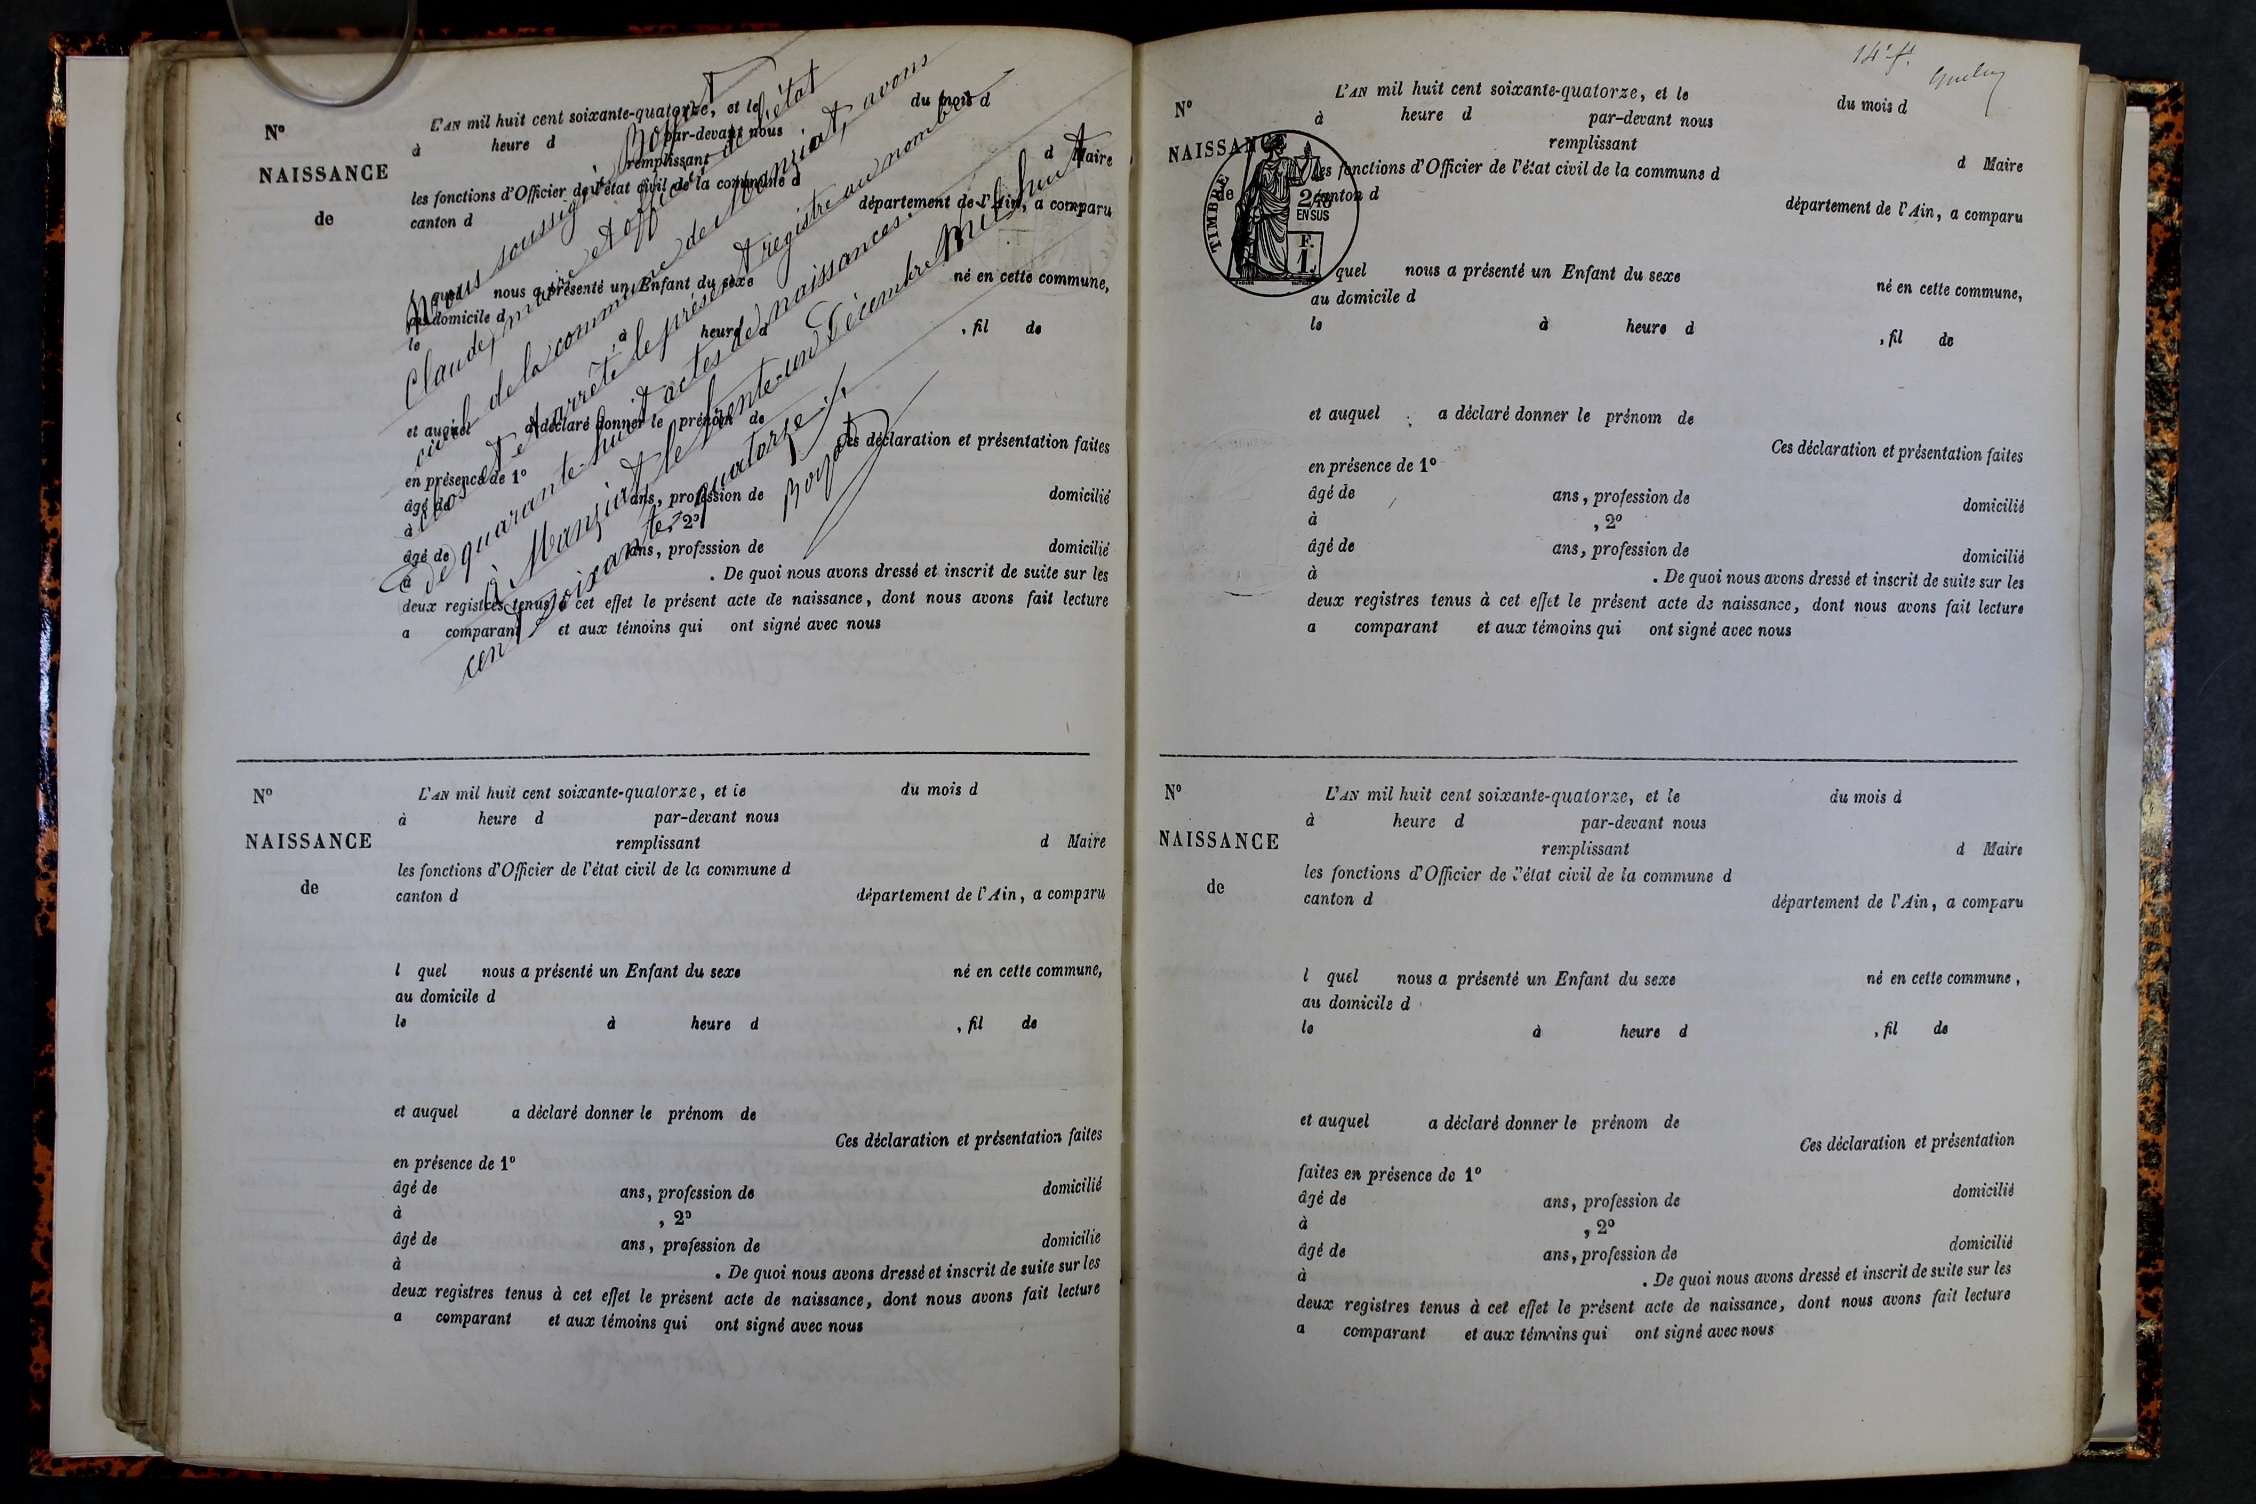 N° L'AN mil huit cent soixante-quatorze, et le du mois d
à heure d par-devant nous
NAISSANCE remplissant d Maire
les fonctions d'Officier de l'état civil de la commune d
de canton d département de l'Ain, a comparu
quel nous a présenté un Enfant du sexe né en cette commune,
au domicile d
le à heure d , fil de
et auquel a déclaré donner le prénom de
Ces déclaration et présentation faites
en présence de 1°
âgé de ans, profession de domicilié
à , 2°
âgé de ans, profession de domicilié
à . De quoi nous avons dressé et inscrit de suite sur les
deux registres tenus à cet effet le présent acte de naissance, dont nous avons fait lecture
a comparant et aux témoins qui ont signé avec nous
Nous soussigné Boyat
Claude, maire et officier de l'état
civil de la commune de Manziat, avons
clos et arrêté le présent registre au nombre
de quarante-huit actes de naissances.
à Manziat le trente-un Décembre mil huit
cent soixante-quatorze
Boyat
N° L'AN mil huit cent soixante-quatorze, et le du mois d
à heure d par-devant nous
NAISSANCE remplissant d Maire
les fonctions d'Officier de l'état civil de la commune d
de canton d département de l'Ain, a comparu
l quel nous a présenté un Enfant du sexe né en cette commune,
au domicile d
le à heure d , fil de
et auquel a déclaré donner le prénom de
Ces déclaration et présentation faites
en présence de 1°
âgé de ans, profession de domicilié
à , 2°
âgé de ans, profession de domicilié
à . De quoi nous avons dressé et inscrit de suite sur les
deux registres tenus à cet effet le présent acte de naissance, dont nous avons fait lecture
a comparant et aux témoins qui ont signé avec nous
14e f.
N° L'AN mil huit cent soixante-quatorze, et le du mois d
à heure d par-devant nous
NAISSANCE remplissant d Maire
les fonctions d'Officier de l'état civil de la commune d
de canton d département de l'Ain, a comparu
TIMBRE
2/10
EN SUS
F.
1.
quel nous a présenté un Enfant du sexe né en cette commune,
au domicile d
le à heure d , fil de
et auquel a déclaré donner le prénom de
Ces déclaration et présentation faites
en présence de 1°
âgé de ans, profession de domicilié
à , 2°
âgé de ans, profession de domicilié
à . De quoi nous avons dressé et inscrit de suite sur les
deux registres tenus à cet effet le présent acte de naissance, dont nous avons fait lecture
a comparant et aux témoins qui ont signé avec nous
N° L'AN mil huit cent soixante-quatorze, et le du mois d
à heure d par-devant nous
NAISSANCE remplissant d Maire
les fonctions d'Officier de l'état civil de la commune d
de canton d département de l'Ain, a comparu
l quel nous a présenté un Enfant du sexe né en cette commune,
au domicile d
le à heure d , fil de
et auquel a déclaré donner le prénom de
Ces déclaration et présentation
faites en présence de 1°
âgé de ans, profession de domicilié
à , 2°
âgé de ans, profession de domicilié
à . De quoi nous avons dressé et inscrit de suite sur les
deux registres tenus à cet effet le présent acte de naissance, dont nous avons fait lecture
a comparant et aux témoins qui ont signé avec nous